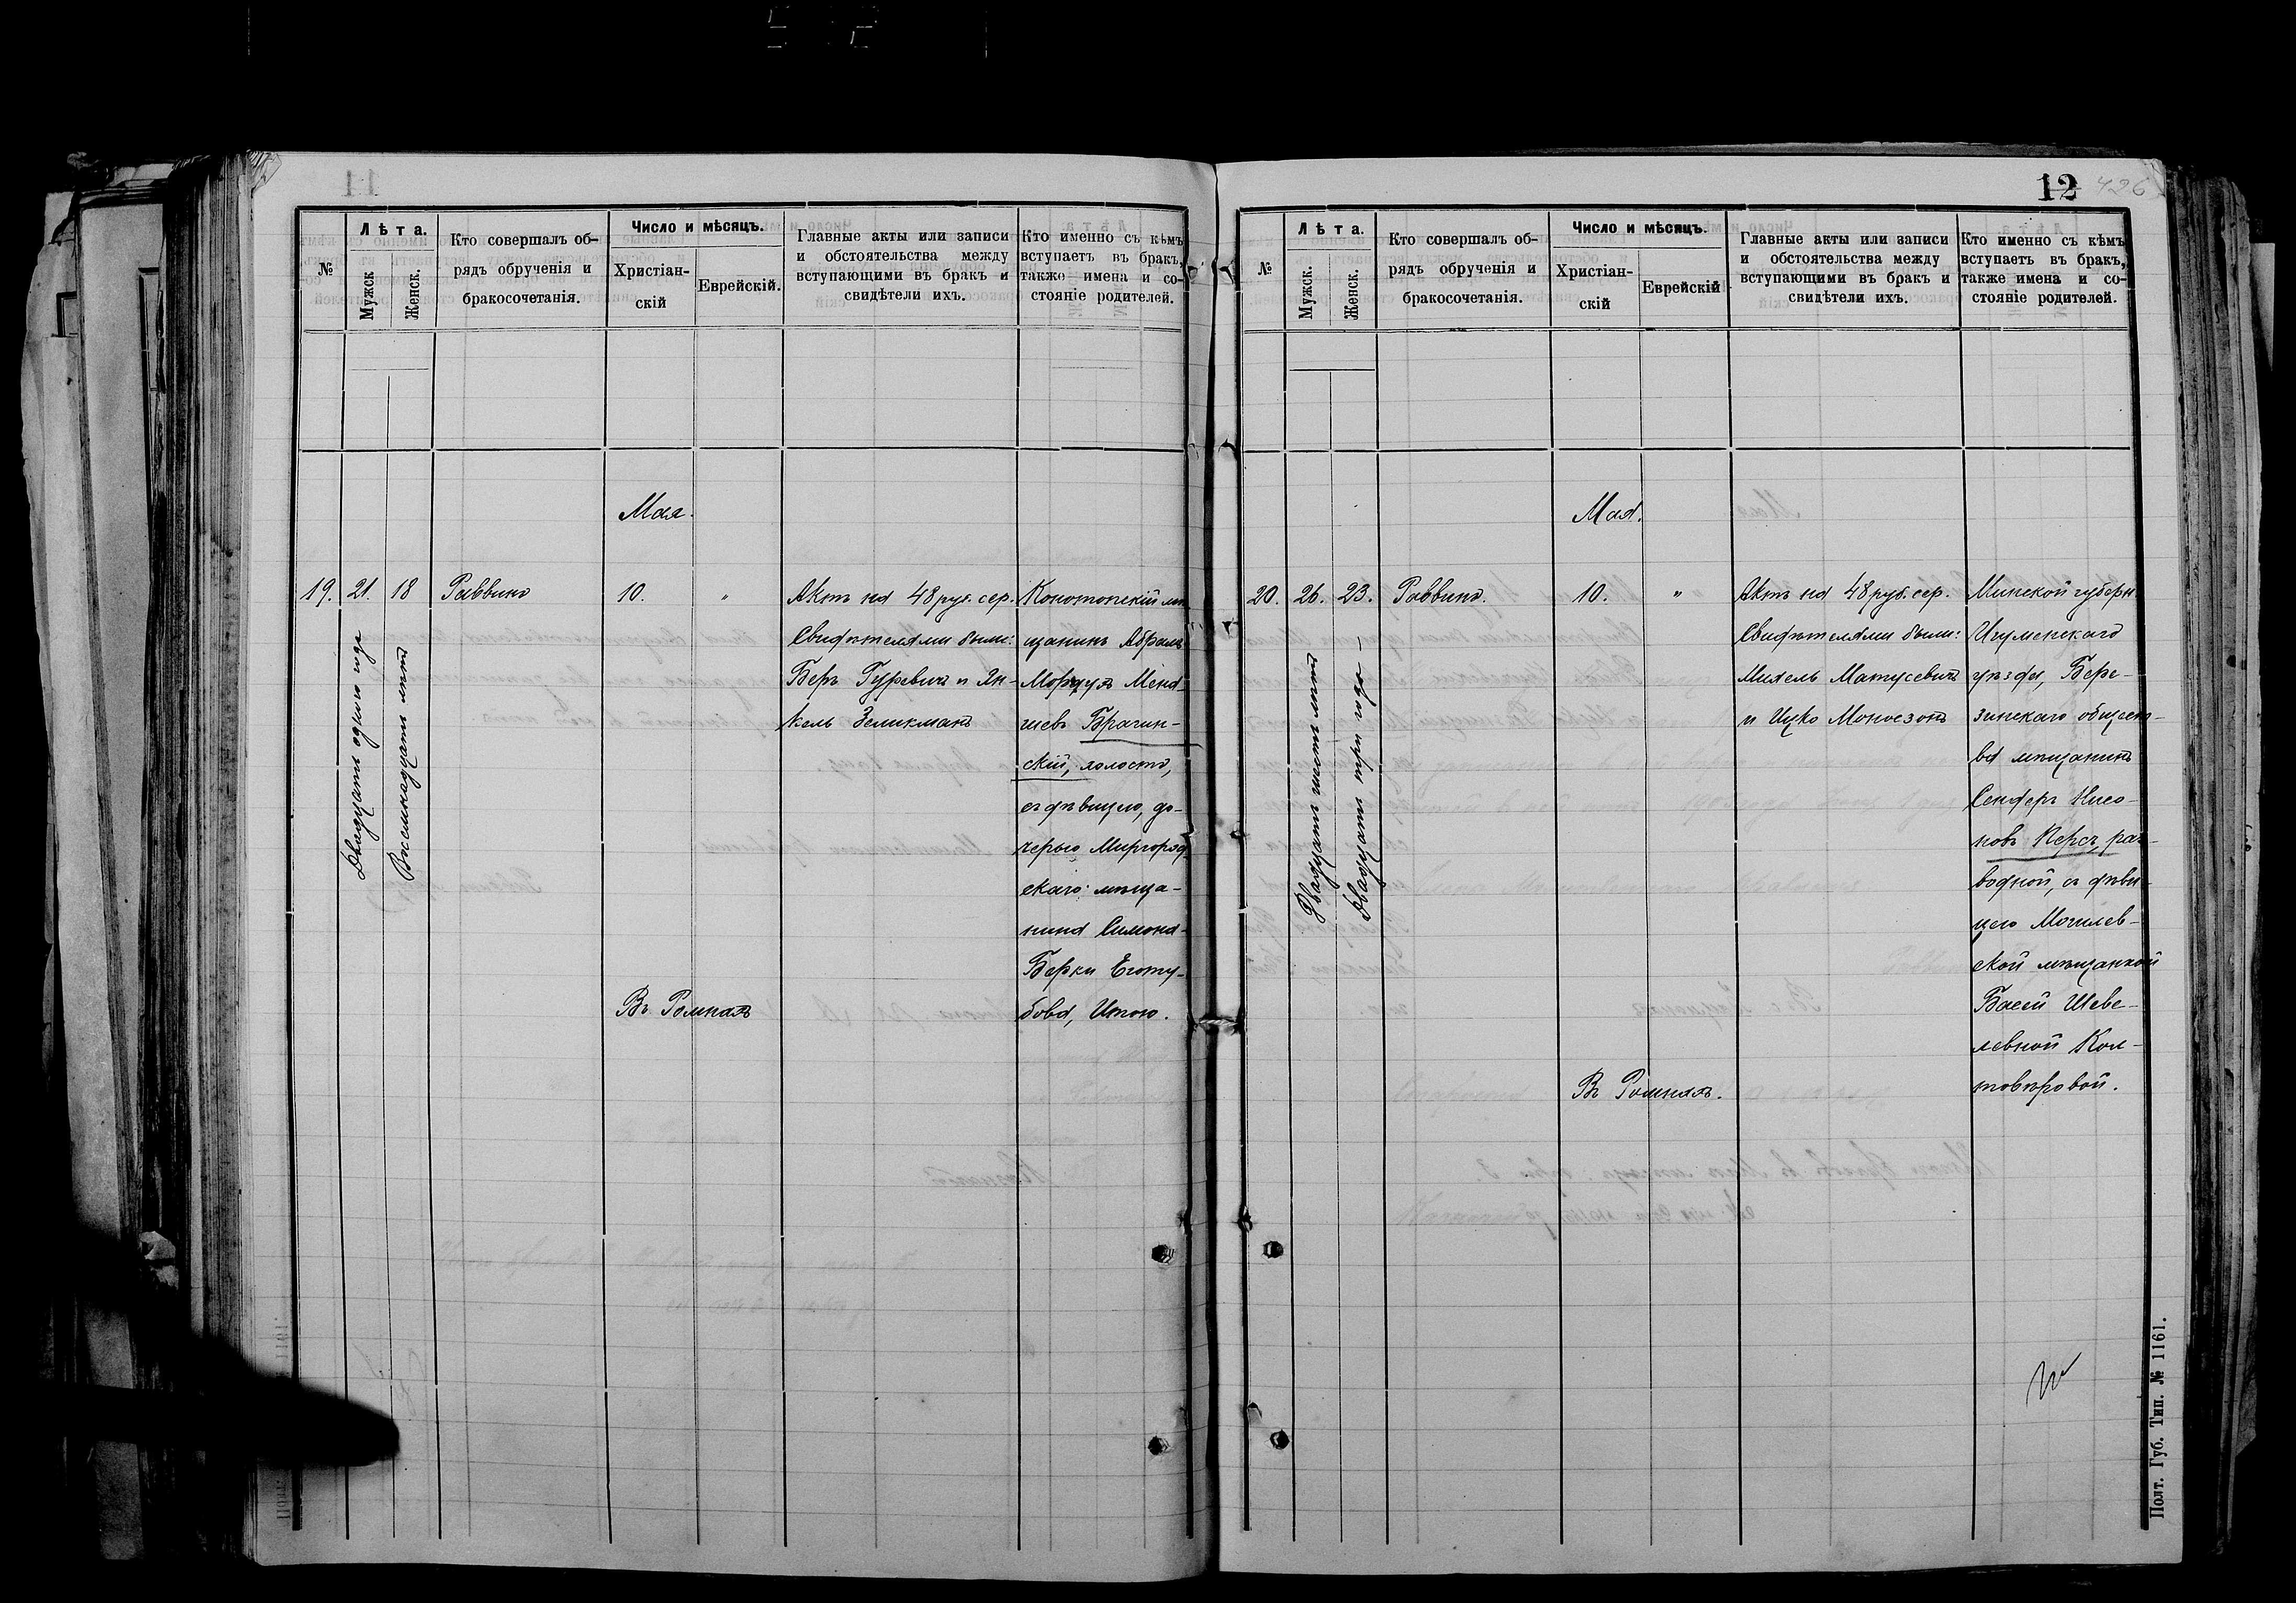 12 426
№
Лѣта.
Мужск
Женск.
Кто совершалъ об-
рядъ обрученія и
бракосочетанія.
Число и мѣсяцъ.
Христіан-
скій
Еврейскій.
Главные акты или записи
и обстоятельства между
вступающими въ бракъ и
свидѣтели ихъ.
Кто именно съ кѣмъ
вступаетъ въ бракъ,
также имена и со-
стояніе родителей.
Мая.
19. 21. 18 Раввинъ 10. "
Двадцать одинъ года
Восемнадцать лѣтъ
Актъ на 48 руб. сер.
Свидѣтелями были:
Беръ Гуревичъ и Ян-
кель Зеликманъ
Конотопскій мѣ-
щанинъ Абрамъ
Мордухъ Менд-
шевъ Брагин-
скій, холостъ,
съ дѣвицею, до-
черью Миргород-
скаго мѣща-
нина Симона-
Берки
бова, Итою.
Въ Ромнахъ
№
Лѣта.
Мужск.
Женск.
Кто совершалъ об-
рядъ обрученія и
бракосочетанія.
Число и мѣсяцъ.
Христіан-
скій
Еврейскій
Главные акты или записи
и обстоятельства между
вступающими въ бракъ и
свидѣтели ихъ.
Кто именно съ кѣмъ
вступаетъ въ бракъ,
также имена и со-
стояніе родителей.
Мая.
20. 26. 23. Раввинъ. 10. "
Двадцать шесть лѣтъ
Двадцать три года —
Актъ на 48 руб. сер.
Свидѣтелями были:
Михель Матусевичъ
и Ицко Моносзонъ
Минской губерн.
Игуменскаго
уѣзда, Бере-
зинскаго общест-
ва мѣщанинъ
Сендеръ Нисо-
новъ Персъ, раз-
водной, съ дѣви-
цею Могилев-
ской мѣщанкой
Басей Шеве-
левной Кол-
товѣровой.
Въ Ромнахъ.
Полт. Губ. Тип. № 1161.